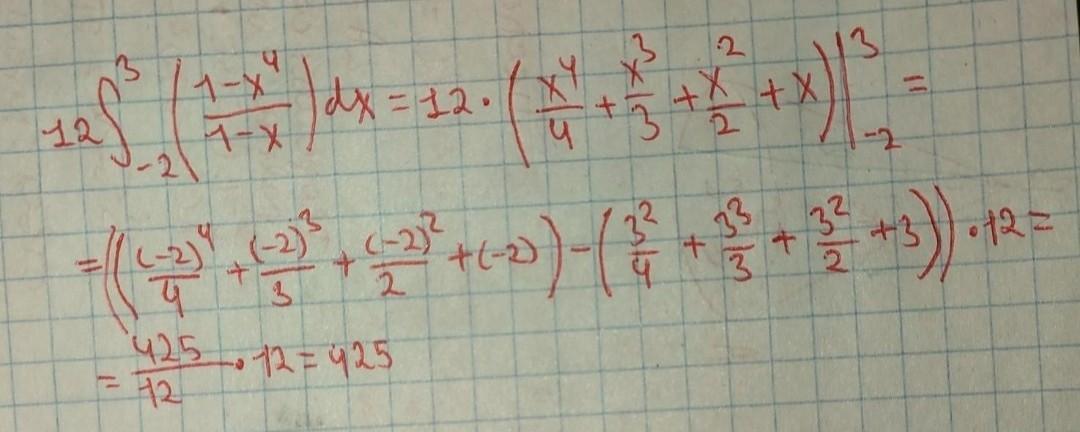 12∫₋₂³((1-x⁴)/(1-x))dx = 12·(x⁴/4 + x³/3 + x²/2 + x)|₋₂³ =
= (((-2)⁴/4 + (-2)³/3 + (-2)²/2 + (-2)) - (3²/4 + 3³/3 + 3²/2 + 3))·12 =
= 425/12·12 = 425